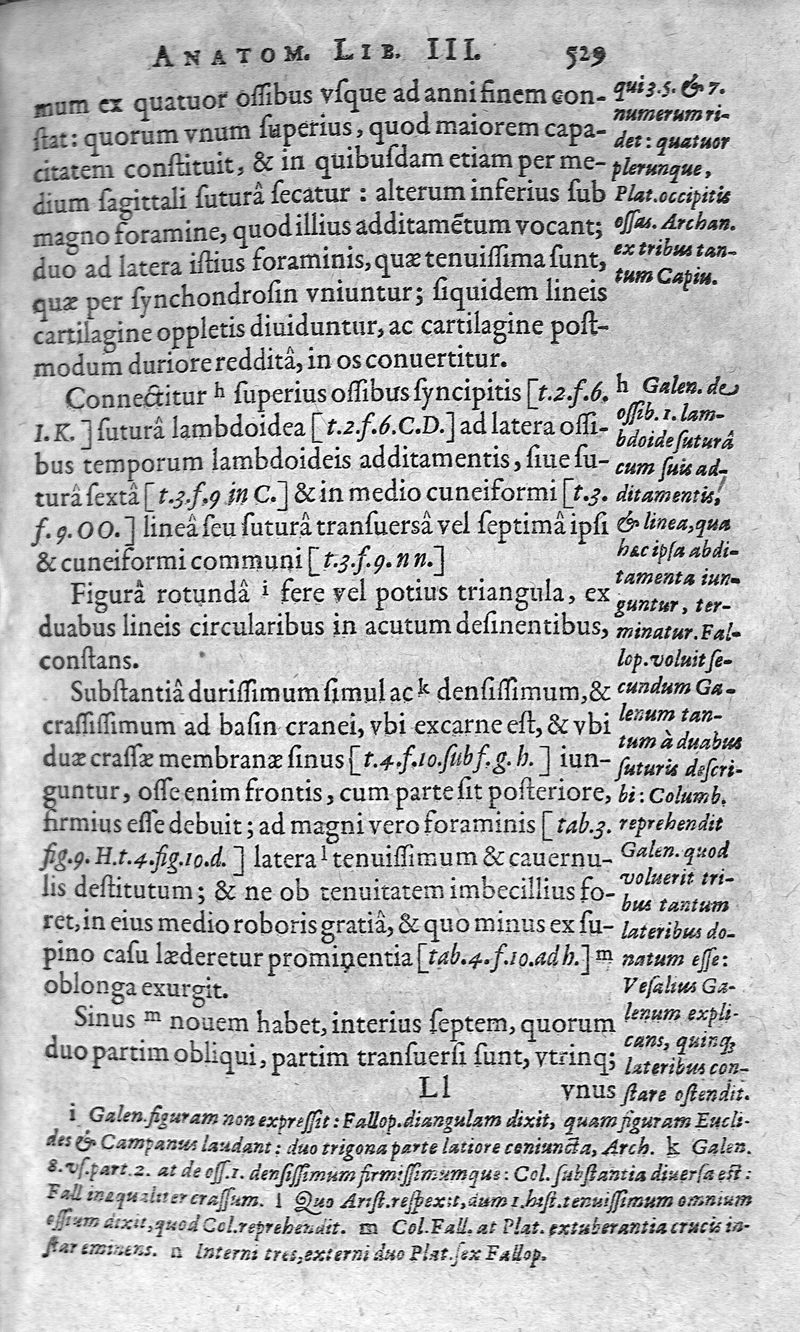 ANATOM. LIB. III. 529
mum ex quatuor ossibus vsque ad anni finem con-
stat: quorum vnum superius, quod maiorem capa-
citatem constituit, & in quibusdam etiam per me-
dium sagittali suturâ secatur : alterum inferius sub
magno foramine, quod illius additamẽtum vocant;
duo ad latera istius foraminis, quæ tenuissima sunt,
quæ per synchondrosin vniuntur; siquidem lineis
cartilagine oppletis diuiduntur, ac cartilagine post-
modum duriore redditâ, in os conuertitur.
Connectitur h superius ossibus syncipitis [t.2.f.6.
I.K.] suturâ lambdoidea [t.2.f.6.C.D.] ad latera ossi-
bus temporum lambdoideis additamentis, siue su-
turâ sextâ [t.3.f.9 in C.] & in medio cuneiformi [t.3.
f.9.OO.] lineâ seu suturâ transuersâ vel septimâ ipsi
& cuneiformi communi [t.3.f.9.nn.]
Figurâ rotundâ i fere vel potius triangula, ex
duabus lineis circularibus in acutum desinentibus,
constans.
Substantiâ durissimum simul ac k densissimum, &
crassissimum ad basin cranei, vbi excarne est, & vbi
duæ crassæ membranæ sinus [t.4.f.10.sub f.g.h.] iun-
guntur, osse enim frontis, cum parte sit posteriore,
firmius esse debuit; ad magni vero foraminis [tab.3.
fig.9.H.t.4.fig.10.d.] latera l tenuissimum & cauernu-
lis destitutum; & ne ob tenuitatem imbecillius fo-
ret, in eius medio roboris gratiâ, & quo minus ex su-
pino casu læderetur prominentia [tab.4.f.10.ad h.] m
oblonga exurgit.
Sinus m nouem habet, interius septem, quorum
duo partim obliqui, partim transuersi sunt, vtrinq;
Ll vnus
qui 3.5. & 7.
numerum ri-
det: quatuor
plerunque,
Plat. occipitis
ossa. Archan.
ex tribus tan-
tum Capiu.
h Galen. de
ossib. 1. lam-
bdoide suturâ
cum suis ad-
ditamentis,
& linea, qua
hæc ipsa abdi-
tamenta iun-
guntur, ter-
minatur. Fal-
lop. voluit se-
cundum Ga-
lenum tan-
tum à duabus
suturis descri-
bi: Columb.
reprehendit
Galen. quod
voluerit tri-
bus tantum
lateribus do-
natum esse:
Vesalius Ga-
lenum expli-
cans, quinq;
lateribus con-
stare ostendit.
i Galen. figuram non expressit: Fallop. diangulam dixit, quam figuram Eucli-
des & Campanus laudant: duo trigona parte latiore coniuncta, Arch. k Galen.
8. vs. part. 2. at de oss. 1. densissimum firmissimumque: Col. substantia diuersa est:
Fall inæqualiter crassum. l Quo Arist. respexit, dum 1. hist. tenuissimum omnium
ossium dixit, quod Col. reprehendit. m Col. Fall. at Plat. extuberantia crucis in-
star eminens. n Interni tres, externi duo Plat. sex Fallop.